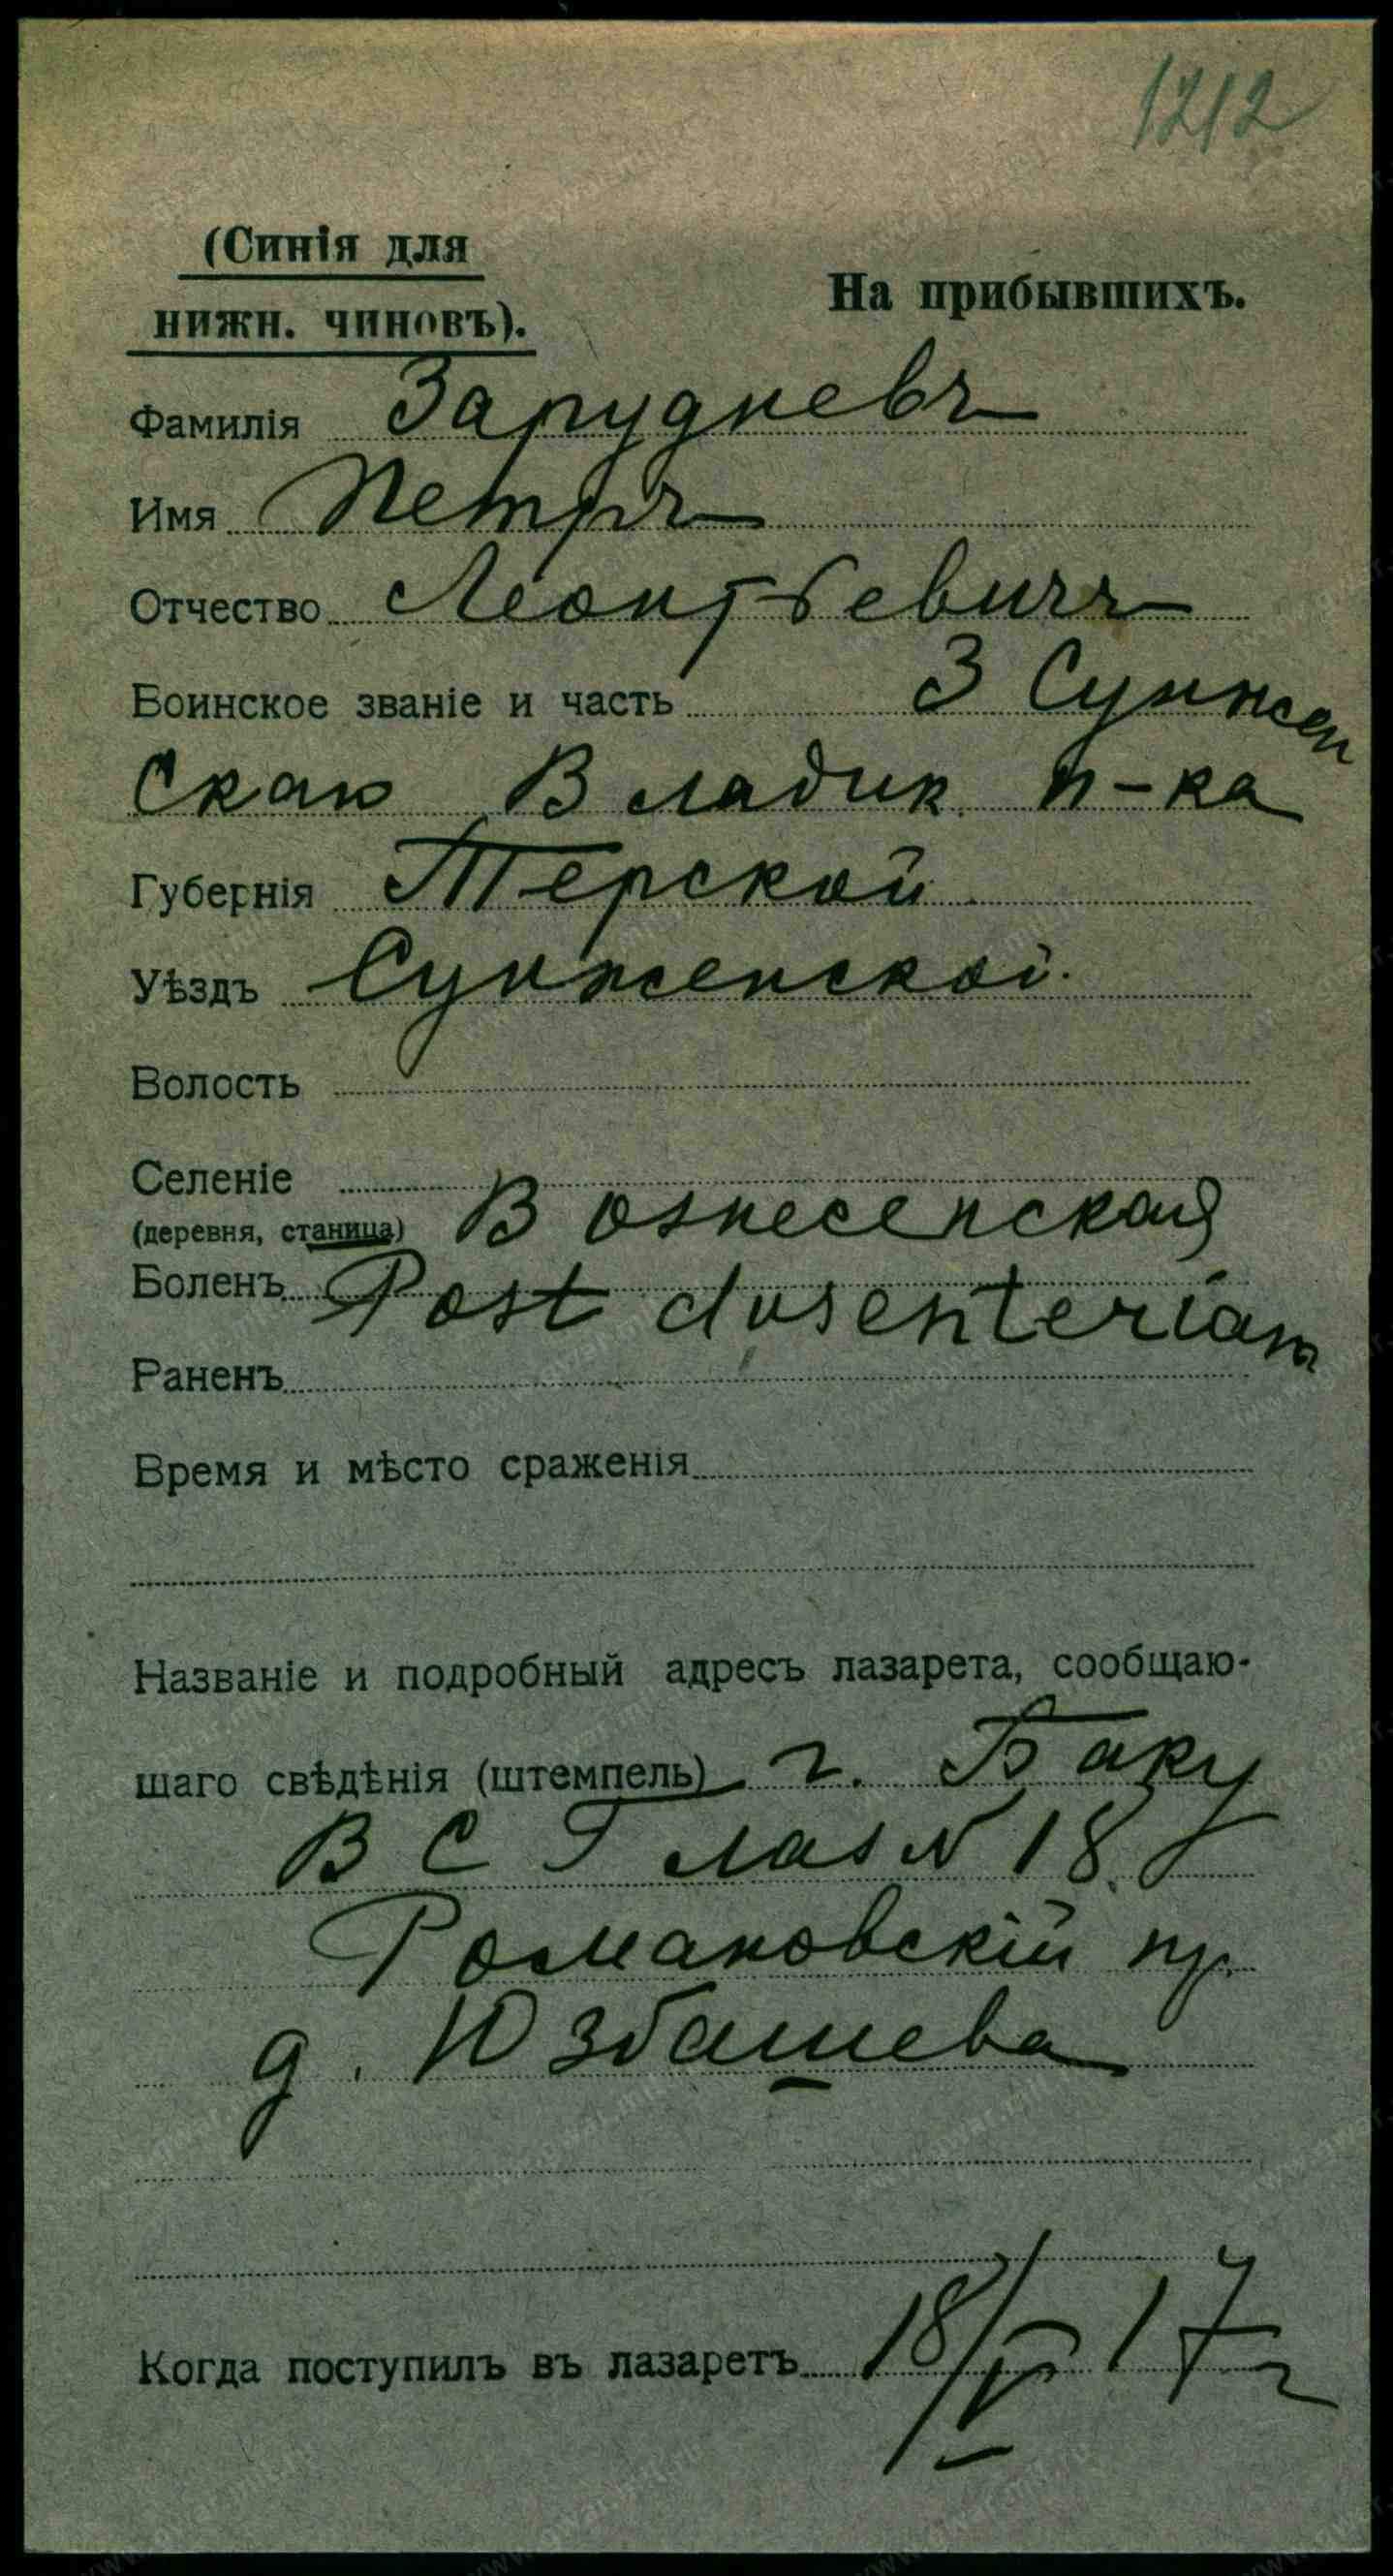 1212
(Синія для
нижн. чиновъ).
На прибывшихъ.
Фамилія Зарудневъ
Имя Петръ
Отчество Леонтьевичъ
Воинское званіе и часть 3 Сунжен
Скаю Владик. п-ка
Губернія Терской
Уѣздъ Сунженской.
Волость
Селеніе
(деревня, станица) Вознесенская
Боленъ Post dysenteriam
Раненъ
Время и мѣсто сраженія
Названіе и подробный адресъ лазарета, сообщаю-
щаго свѣдѣнія (штемпель) г. Баку
В С Г лаз N 18.
Романовскій пр.
д. Юзбашева
Когда поступилъ въ лазаретъ 18/V 17 г